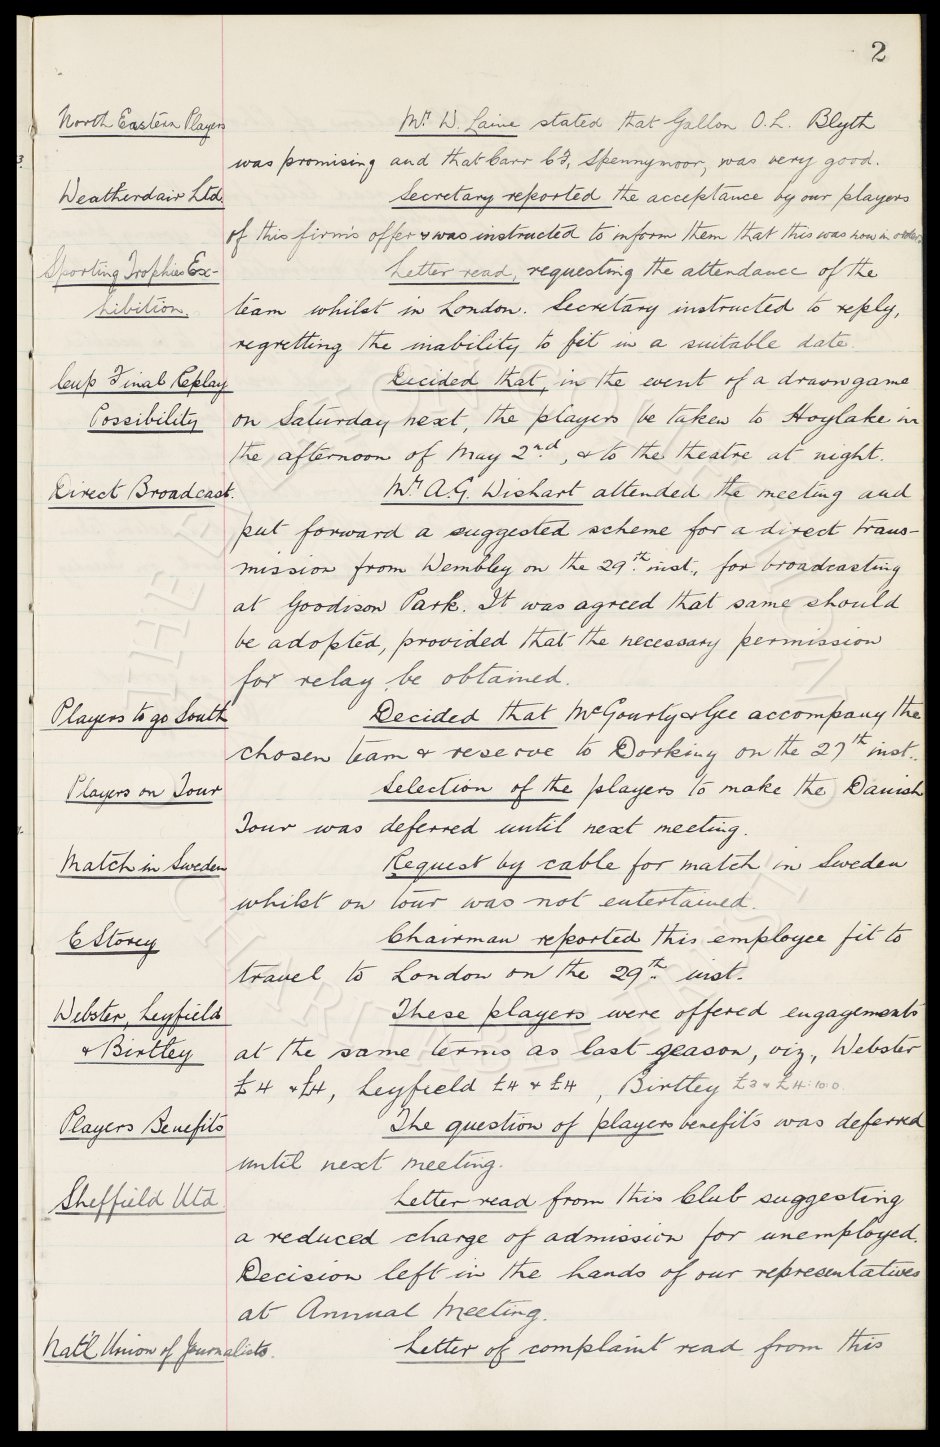 2
North Eastern Players
Mr. W. Laine stated that Gallon O.L. Blyth
was promising and that Carr C.F, Spennymoor, was very good.
Weatherdair Ltd.
Secretary reported the acceptance by our players
of this firm's offer & was instructed to inform them that this was now in order.
Sporting Trophies Ex-
hibition.
Letter read, requesting the attendance of the
team whilst in London. Secretary instructed to reply,
regretting the inability to fit in a suitable date.
Cup Final Replay
Possibility
Decided that, in the event of a drawn game
on Saturday next, the players be taken to Hoylake in
the afternoon of May 2nd, & to the theatre at night.
Direct Broadcast.
Mr. A.G. Wishart attended the meeting and
put forward a suggested scheme for a direct trans-
mission from Wembley on the 29th. inst., for broadcasting
at Goodison Park. It was agreed that same should
be adopted, provided that the necessary permission
for relay be obtained.
Players to go South
Decided that McGourty & Gee accompany the
chosen team & reserve to Dorking on the 27th inst..
Players on Tour
Selection of the players to make the Danish
Tour was deferred until next meeting.
Match in Sweden
Request by cable for match in Sweden
whilst on tour was not entertained.
E Storey
Chairman reported this employee fit to
travel to London on the 29th. inst.
Webster, Leyfield
& Birtley
These players were offered engagements
at the same terms as last season, viz., Webster
£4 & £4, Leyfield £4 & £4, Birtley £3 & £4:10:0
Players Benefits
The question of players benefits was deferred
until next meeting.
Sheffield Utd
Letter read from this Club suggesting
a reduced charge of admission for unemployed.
Decision left in the hands of our representatives
at Annual Meeting.
Nat'l Union of Journalists.
Letter of complaint read from this